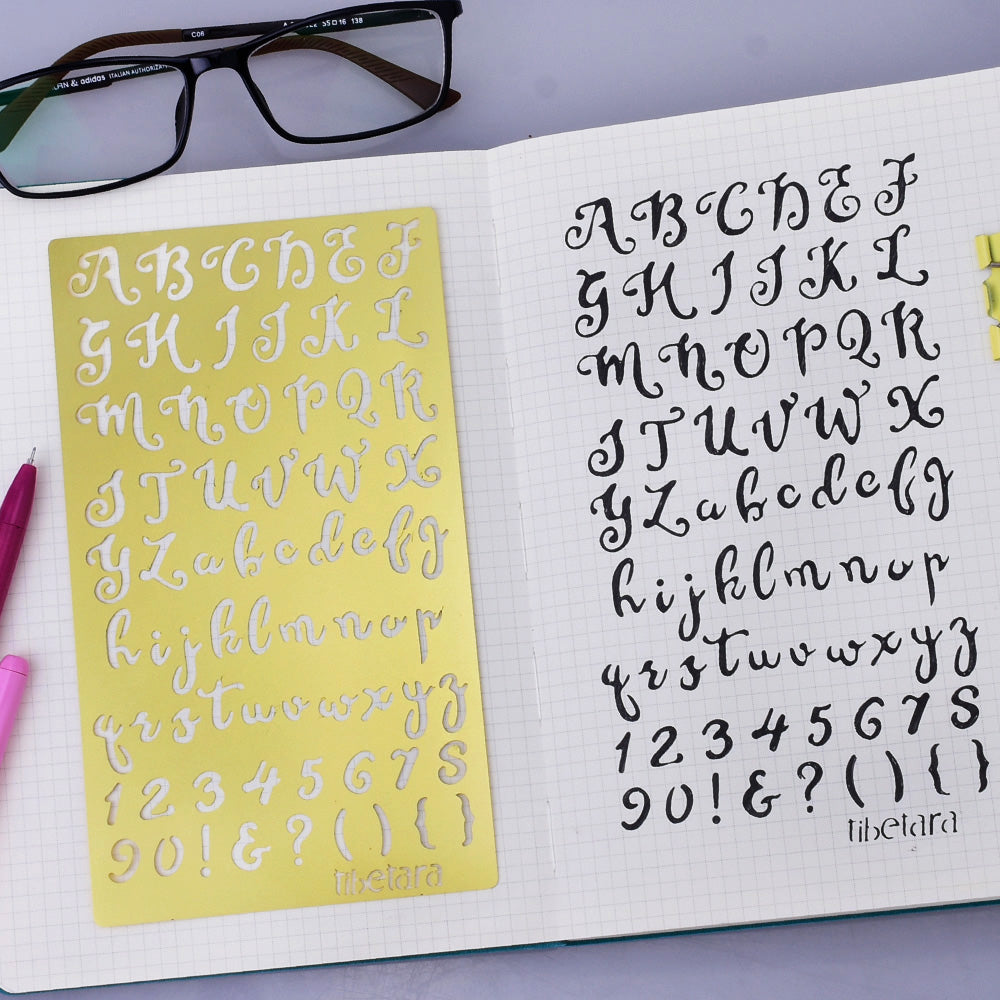 C06
55□16 138
& adidas ITALIAN AUTHORIZAT
A B C D E F
G H I J K L
M N O P Q R
S T U V W X
Y Z a b c d e f g
h i j k l m n o p
q r s t u v w x y z
1 2 3 4 5 6 7 8
9 0 ! & ? ( ) { }
tibetara
A B C D E F
G H I J K L
M N O P Q R
S T U V W X
Y Z a b c d e f g
h i j k l m n o p
q r s t u v w x y z
1 2 3 4 5 6 7 8
9 0 ! & ? ( ) { }
tibetara